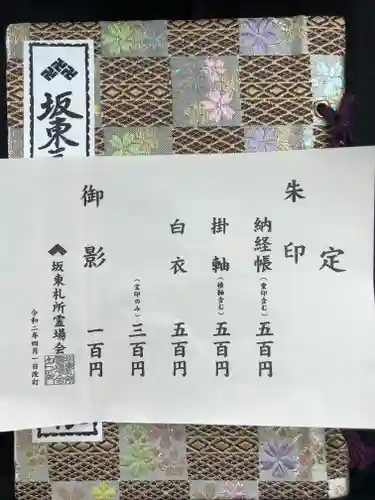 定
朱印
納経帳（重印含む）五百円
掛軸（横軸含む）五百円
白衣 五百円
（宝印のみ）三百円
御影 一百円
坂東札所霊場会
令和二年四月一日改訂
坂東三